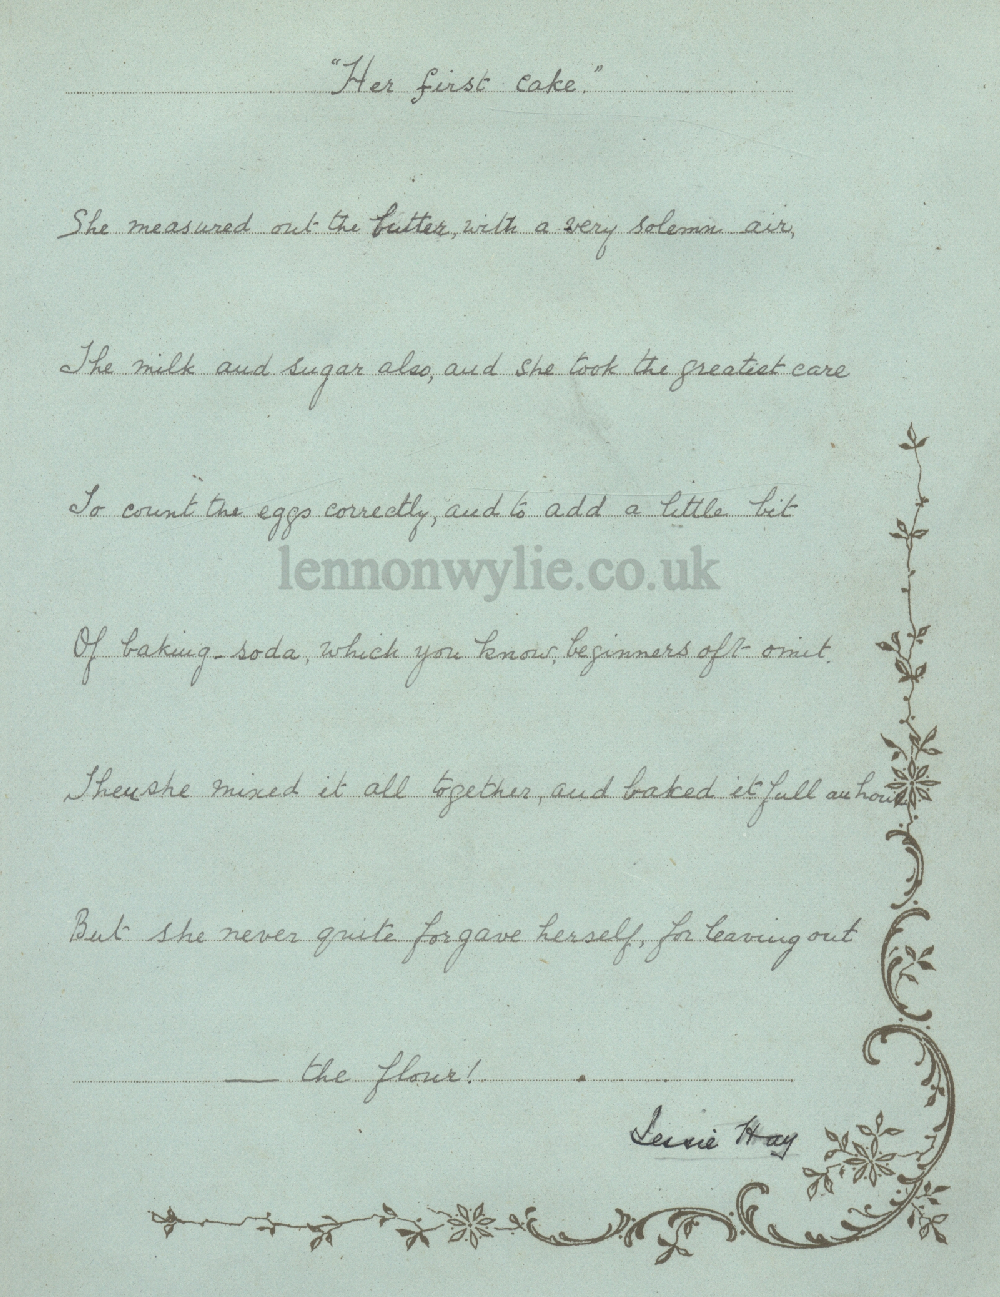 "Her first cake."
She measured out the butter, with a very solemn air,
The milk and sugar also, and she took the greatest care
To count the eggs correctly, and to add a little bit
lennonwylie.co.uk
Of baking-soda, which you know, beginners oft omit.
Then she mixed it all together, and baked it full an hour
But she never quite forgave herself, for leaving out
— the flour!
Jessie Hay